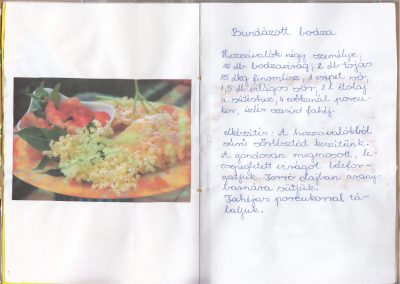 Bundázott bodza
Hozzávalók négy személyre:
16 db bodzavirág; 2 db tojás
15 dkg finomliszt, 1 csipet só,
1,5 dl világos sör; 1 l étolaj
a sütéshez, 4 evőkanál porcu-
kor, ízlés szerint fahéj.
Elkészítés: A hozzávalókból
sűrű sörtésztát készítünk.
A gondosan megmosott, le-
csepegtetett virágot belefor-
gatjuk. Forró olajban arany-
barnára sütjük.
Fahéjas porcukorral tá-
laljuk.